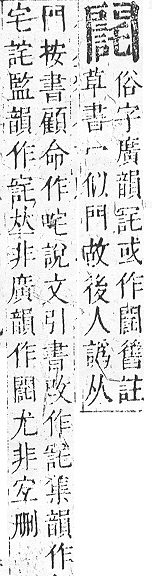 俗字廣韻或作舊註
草書宀似門故後人譌从
門按書顧命作咤說文引書改作集韻作
宅詫監韻作𠀤非廣韻作尤非宐刪